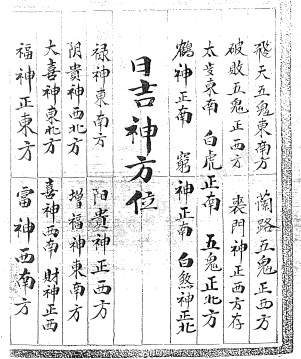 飛天五鬼東南方 蘭路五鬼正西方
破敗五鬼正西方 裹門神正西方存
太歲東南 白虎正南 五鬼正北方
鶴神正南 窮神正南 白煞神正北
日吉神方位
祿神東南方 阳貴神正西方
阴貴神西北方 增福神東南方
大喜神東北方 喜神西南 財神正西
福神正東方 富神西南方